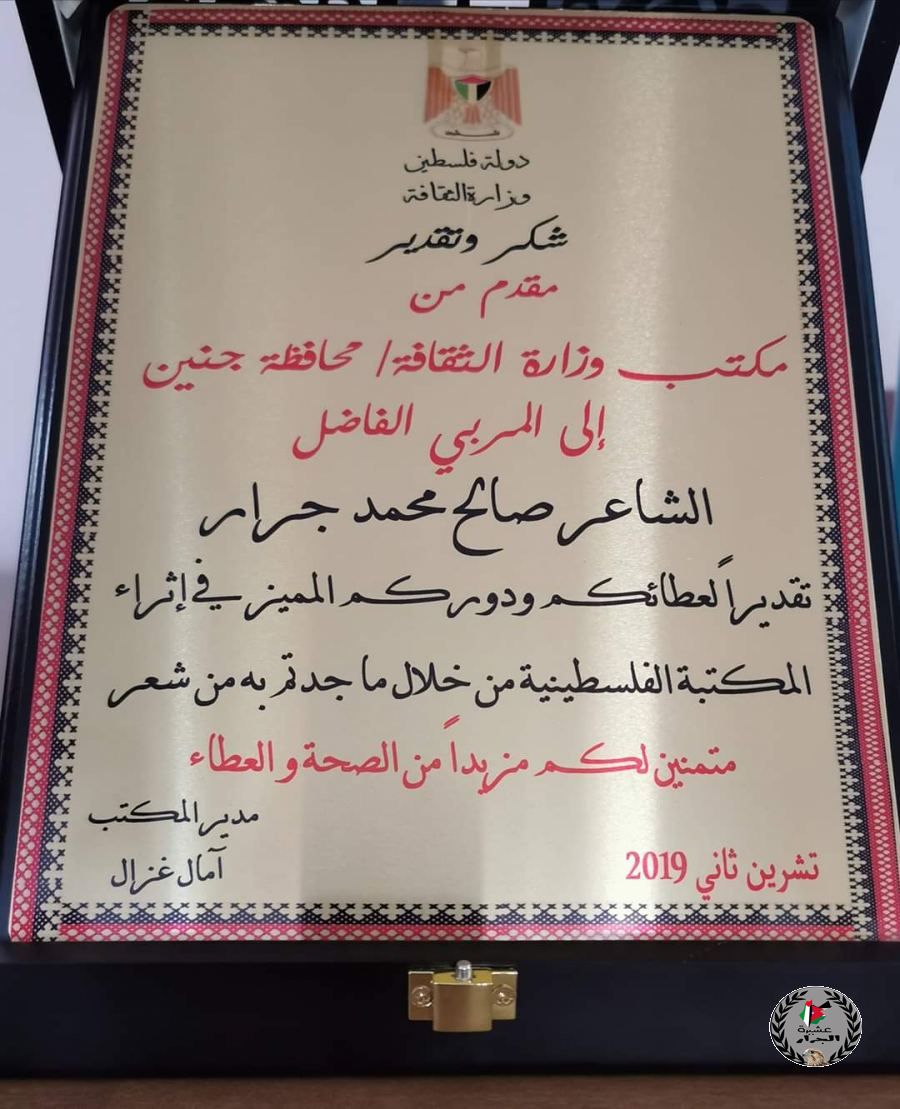 فلسطين
دولة فلسطين
وزارة الثقافة
شكر وتقدير
مقدم من
مكتب وزارة الثقافة/ محافظة جنين
إلى المربي الفاضل
الشاعر صالح محمد جرار
تقديراً لعطائكم ودوركم المميز في إثراء
المكتبة الفلسطينية من خلال ما جدتم به من شعر
متمنين لكم مزيداً من الصحة و العطاء
مدير المكتب
آمال غزال
تشرين ثاني 2019
عشيرة
الجرار